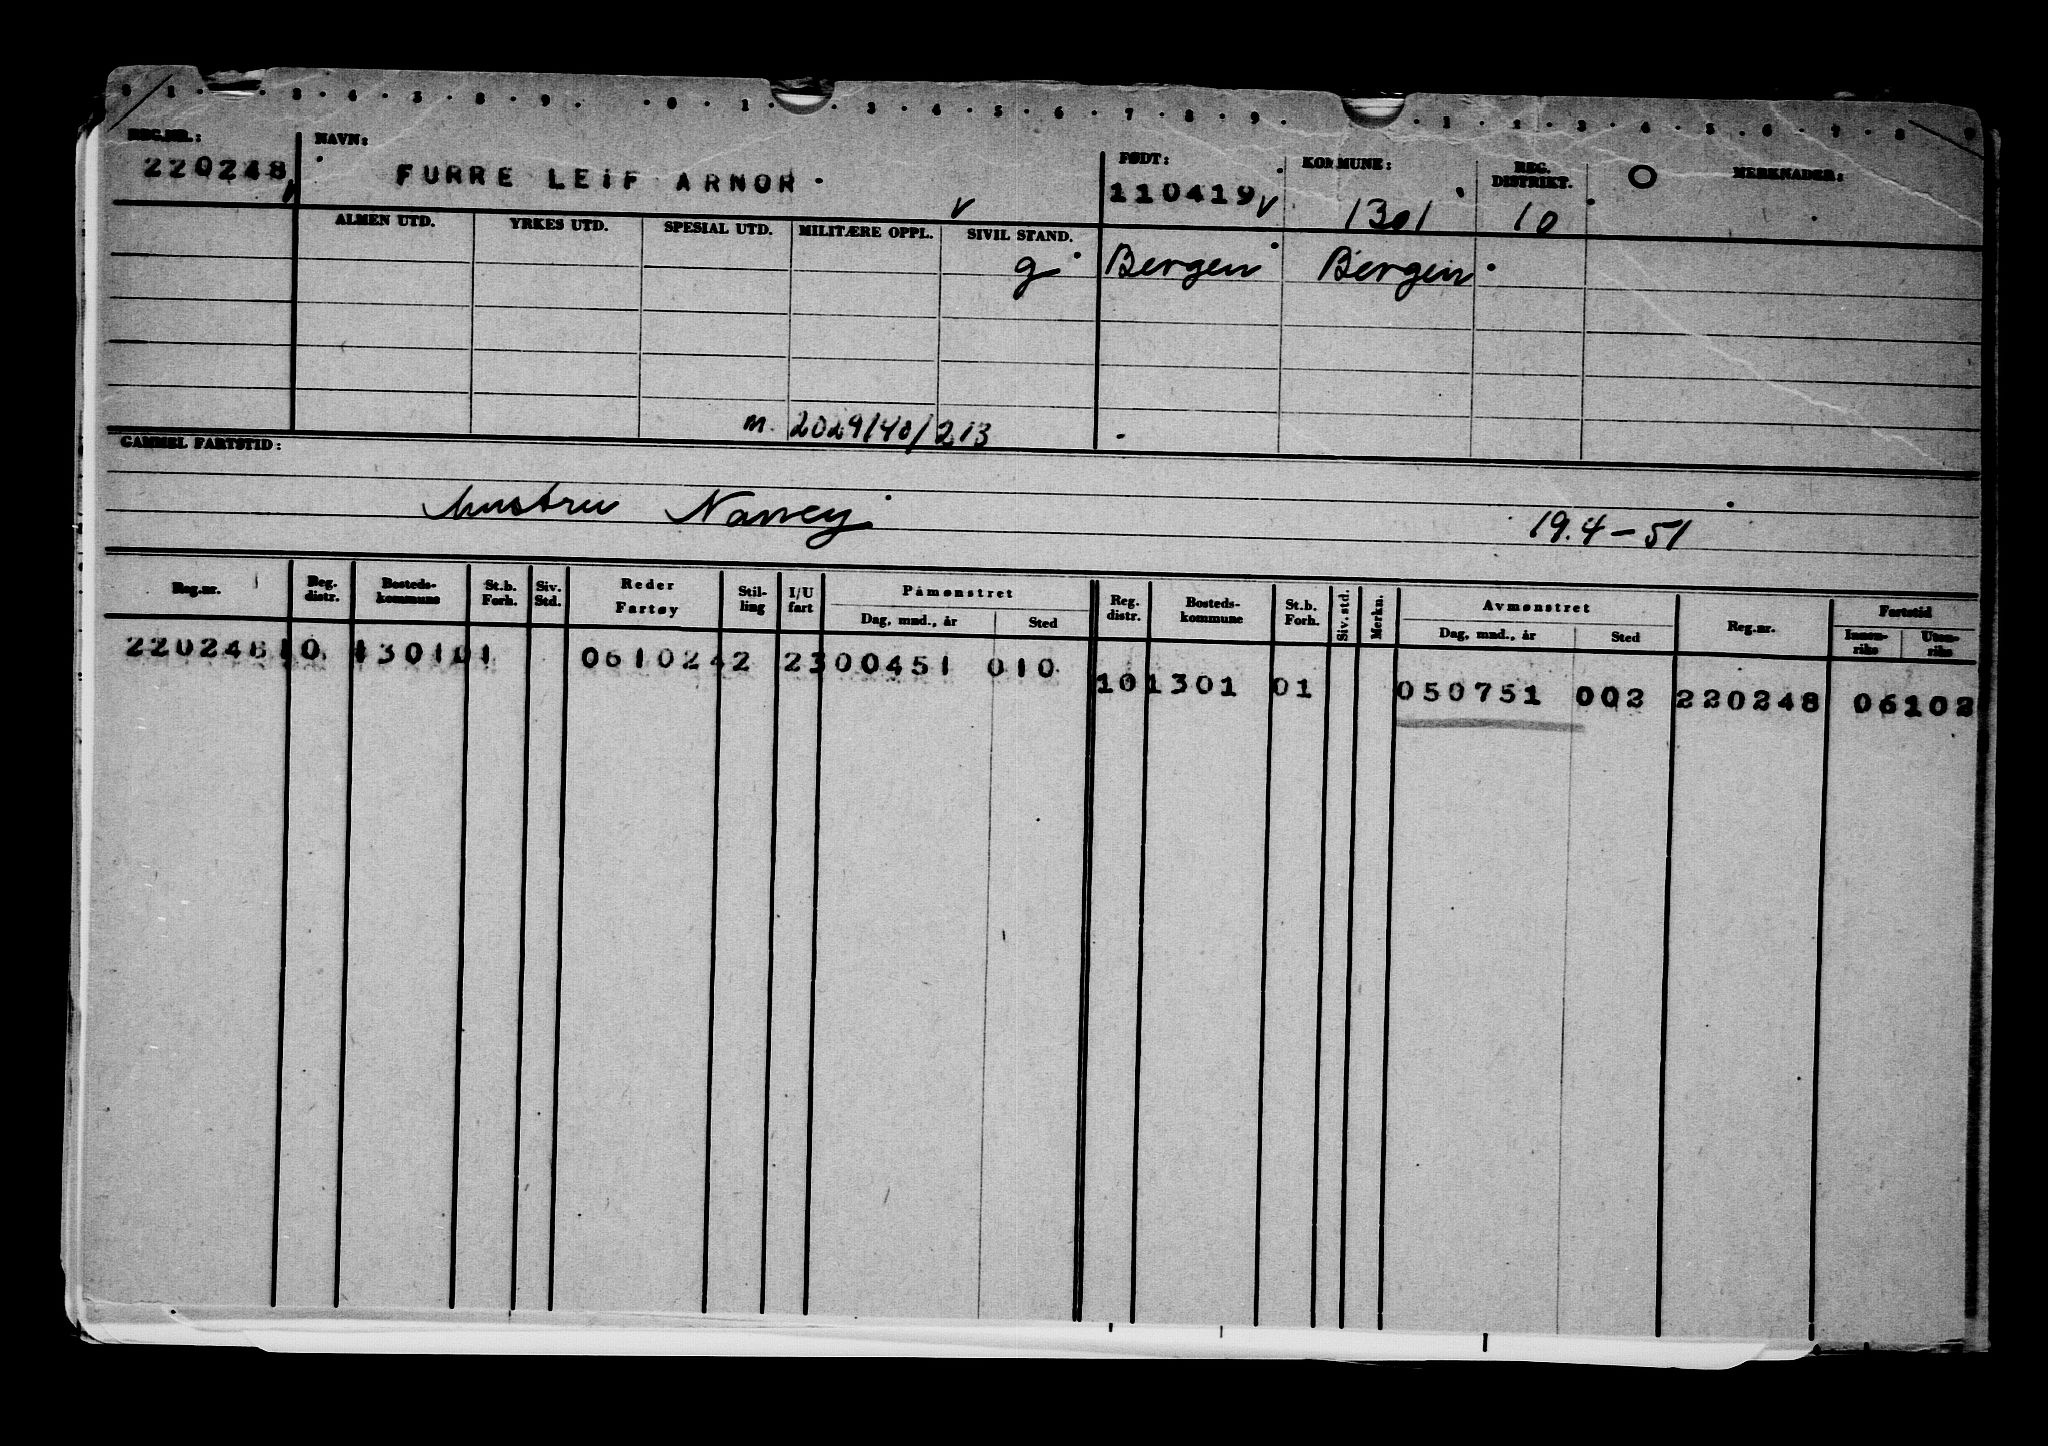 REG.NR.: NAVN: FØDT: KOMMUNE: REG. DISTRIKT. MERKNADER:
220248 FURRE LEIF ARNOR 110419 1301 10
ALMEN UTD. YRKES UTD. SPESIAL UTD. MILITÆRE OPPL. SIVIL STAND.
g Bergen Bergen
m. 2029/40/213
GAMMEL FARTSTID:
hustru Nancy 19.4-51
Reg.nr. Reg. distr. Bosteds-kommune St.b. Forh. Siv. Std. Reder Fartøy Stil-ling I/U fart Påmønstret Dag, mnd., år Sted Reg. distr. Bosteds-kommune St.b. Forh. Siv. std. Merkn. Avmønstret Dag, mnd., år Sted Reg.nr. Fartstid Innen-riks Uten-riks
220248 10 1301 01 061024 2 2 300451 010
10 1301 01 050751 002 220248 06102